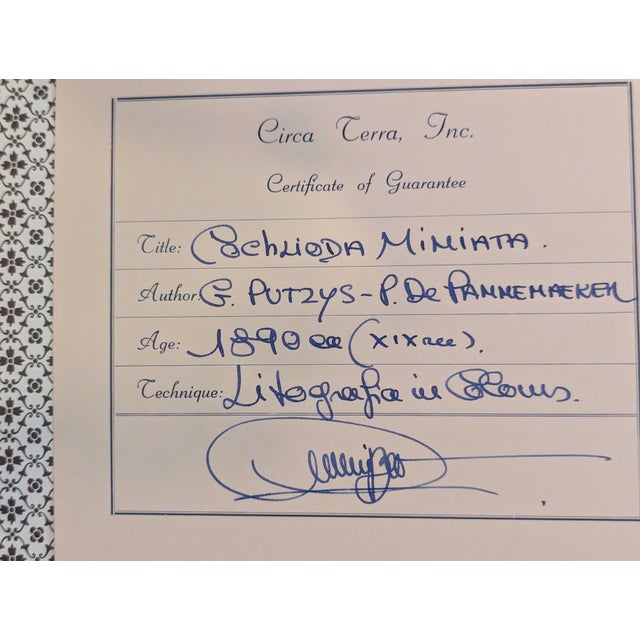 Circa Terra, Inc.
Certificate of Guarantee
Title: Cochlioda Miniata.
Author: G. Putzys - P. De Pannemaeker
Age: 1890 ca (XIX sec).
Technique: Litografia in Colours.